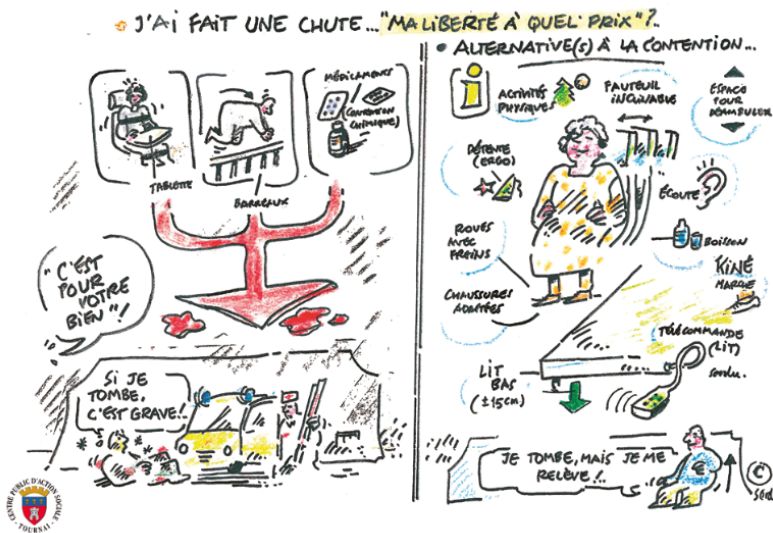 J'AI FAIT UNE CHUTE... "MA LIBERTÉ À QUEL PRIX"?..
MÉDICAMENTS
(CONTENTION
CHIMIQUE)
TABLETTE
BARREAUX
"C'EST
POUR
VOTRE
BIEN"!
SI JE
TOMBE,
C'EST GRAVE!..
CENTRE PUBLIC D'ACTION SOCIALE
TOURNAI
ALTERNATIVE(S) À LA CONTENTION...
i
ACTIVITÉS
PHYSIQUES
FAUTEUIL
INCLINABLE
ESPACE
POUR
DÉAMBULER
DÉTENTE
(ERGO)
ÉCOUTE
ROUES
AVEC
FREINS
BOISSON
KINÉ
MARCHE
CHAUSSURES
ADAPTÉES
TÉLÉCOMMANDE
(LIT)
LIT
BAS
(±15cm)
JE TOMBE, MAIS JE ME
RELÈVE!..
©